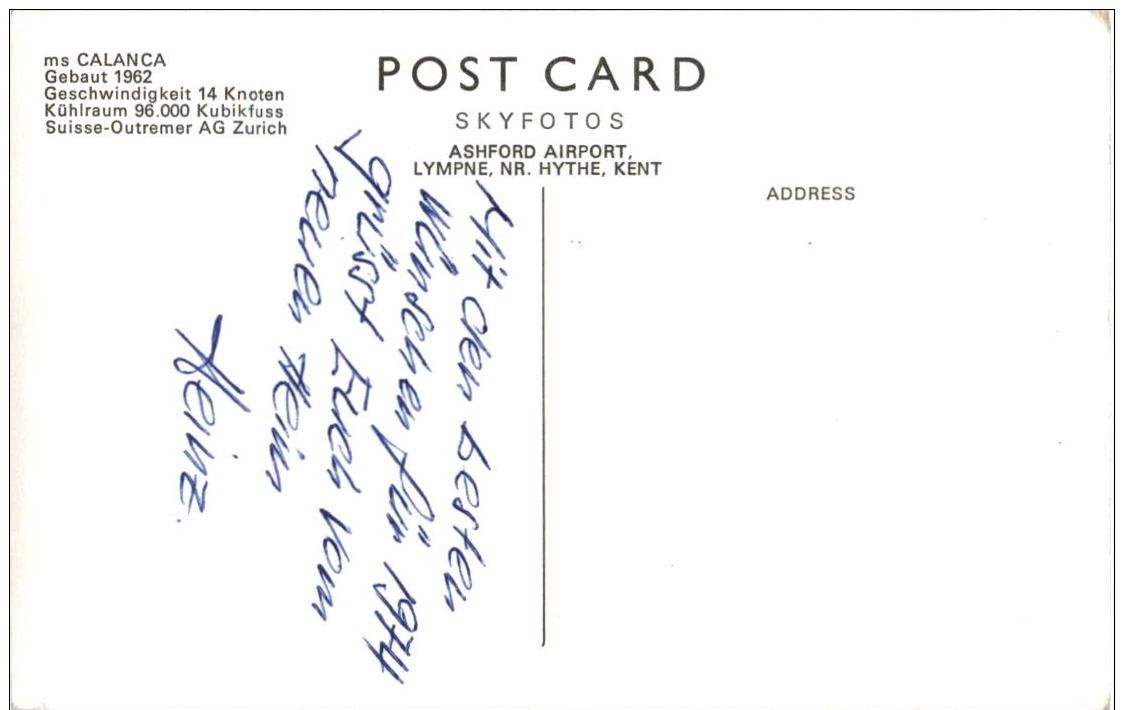 ms CALANCA
Gebaut 1962
Geschwindigkeit 14 Knoten
Kühlraum 96.000 Kubikfuss
Suisse-Outremer AG Zurich
POST CARD
SKYFOTOS
ASHFORD AIRPORT,
LYMPNE, NR. HYTHE, KENT
ADDRESS
Mit den besten
Wünschen für 1974
grüsst Euch vom
neuen Heim
Heinz.